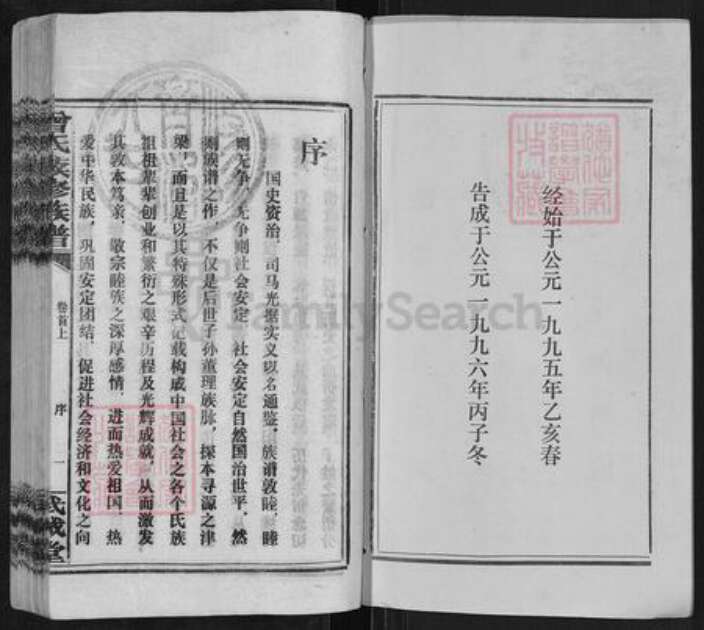 经始于公元一九九五年乙亥春
告成于公元一九九六年丙子冬
序
国史资治，司马光据实义以名通鉴，族谱敦睦，睦
则无争，无争则社会安定，社会安定自然国治世平，然
则族谱之作，不仅是后世子孙董理族脉，探本寻源之津
梁，而且是以其特殊形式记载构成中国社会之各个氏族
祖祖辈辈创业和繁衍之艰辛历程及光辉成就，从而激发
其敦本笃亲，敬宗睦族之深厚感情，进而热爱祖国，热
爱中华民族，巩固安定团结，促进社会经济和文化之向
曾氏 修族谱
卷首上
序
一
武城堂
FamilySearch